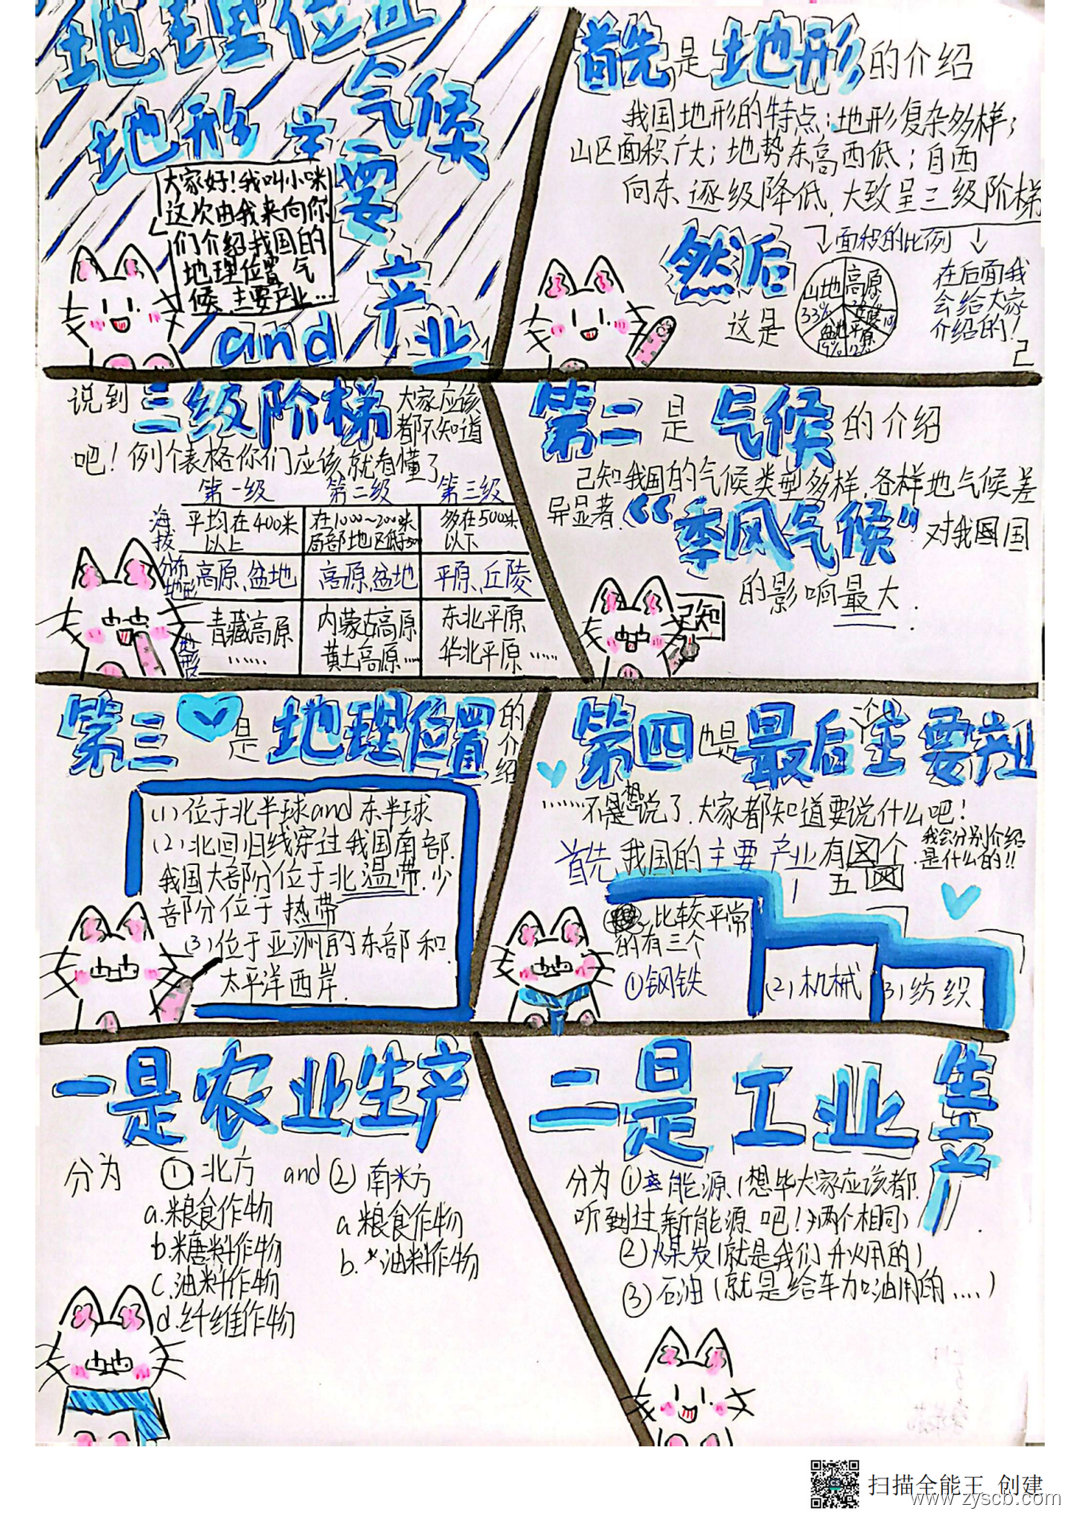 地理位置
地形 气候
主要
产业
and
大家好！我叫小咪
这次由我来向你
们介绍我国的
地理位置 气
候、主要产业…
1
首先是地形的介绍
我国地形的特点：地形复杂多样；
山区面积广大；地势东高西低；自西
向东逐级降低，大致呈三级阶梯
然后
这是
面积的比例
山地
33%
高原
盆地
19%
平原
12%
在后面我
会给大家
介绍的！
2
说到三级阶梯大家应该
都不知道
吧！例个表格你们应该就有懂了
第一级 第二级 第三级
海拔 平均在400米以上 在1000~2000米 多在500米以下
高原、盆地 高原、盆地 平原、丘陵
青藏高原…… 内蒙古高原 黄土高原… 东北平原 华北平原……
第二是气候的介绍
己知我国的气候类型多样，各样地气候差
异显著，“季风气候”对我国国
的影响最大．
己知
第三是地理位置的介绍
(1)位于北半球and东半球
(2)北回归线穿过我国南部．
我国大部分位于北温带，少
部分位于热带
(3)位于亚洲的东部和
太平洋西岸．
第四也是最后个主要产业
……不是想说了，大家都知道要说什么吧！
首先我国的主要产业有四个
五
我会分别介绍
是什么的!!
比较平常
的有三个
①钢铁 (2)机械 (3)纺织
一是农业生产
分为 ①北方 and ②南方
a.粮食作物 a 粮食作物
b.糖料作物 b. 油料作物
c.油料作物
d.纤维作物
二是工业生产
分为①能源(想毕大家应该都
听到过新能源吧！两个相同)
②煤炭(就是我们开火用的)
③石油(就是给车加油用的....)
扫描全能王 创建
www.zyscb.com